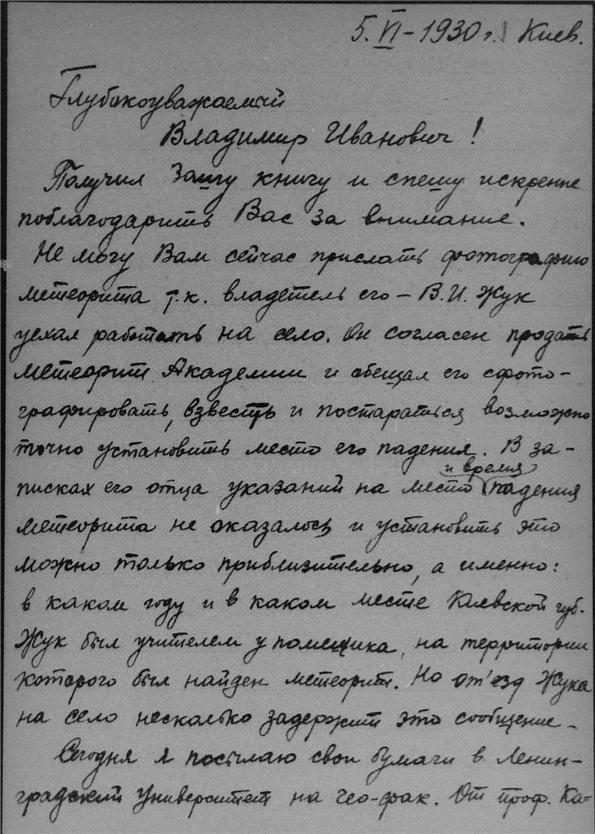 5.VI-1930г. Киев.
Глубокоуважаемый
Владимир Иванович!
Получил Вашу книгу и спешу искренне
поблагодарить Вас за внимание.
Не могу Вам сейчас прислать фотографию
метеорита т.к. владетель его – В.И. Жук
уехал работать на село. Он согласен продать
метеорит Академии и обещал его сфото-
графировать, взвесть и постараться возможно
точно установить место его падения. В за-
и время
писках его отца указаний на место падения
метеорита не оказалось и установить это
можно только приблизительно, а именно:
в каком году и в каком месте Киевской губ.
Жук был учителем у помещика, на территории
которого был найден метеорит. Но от'езд Жука
на село несколько задержит это сообщение.
Сегодня я посылаю свои бумаги в Ленин-
градский Университет на гео-фак. От проф. Ка-